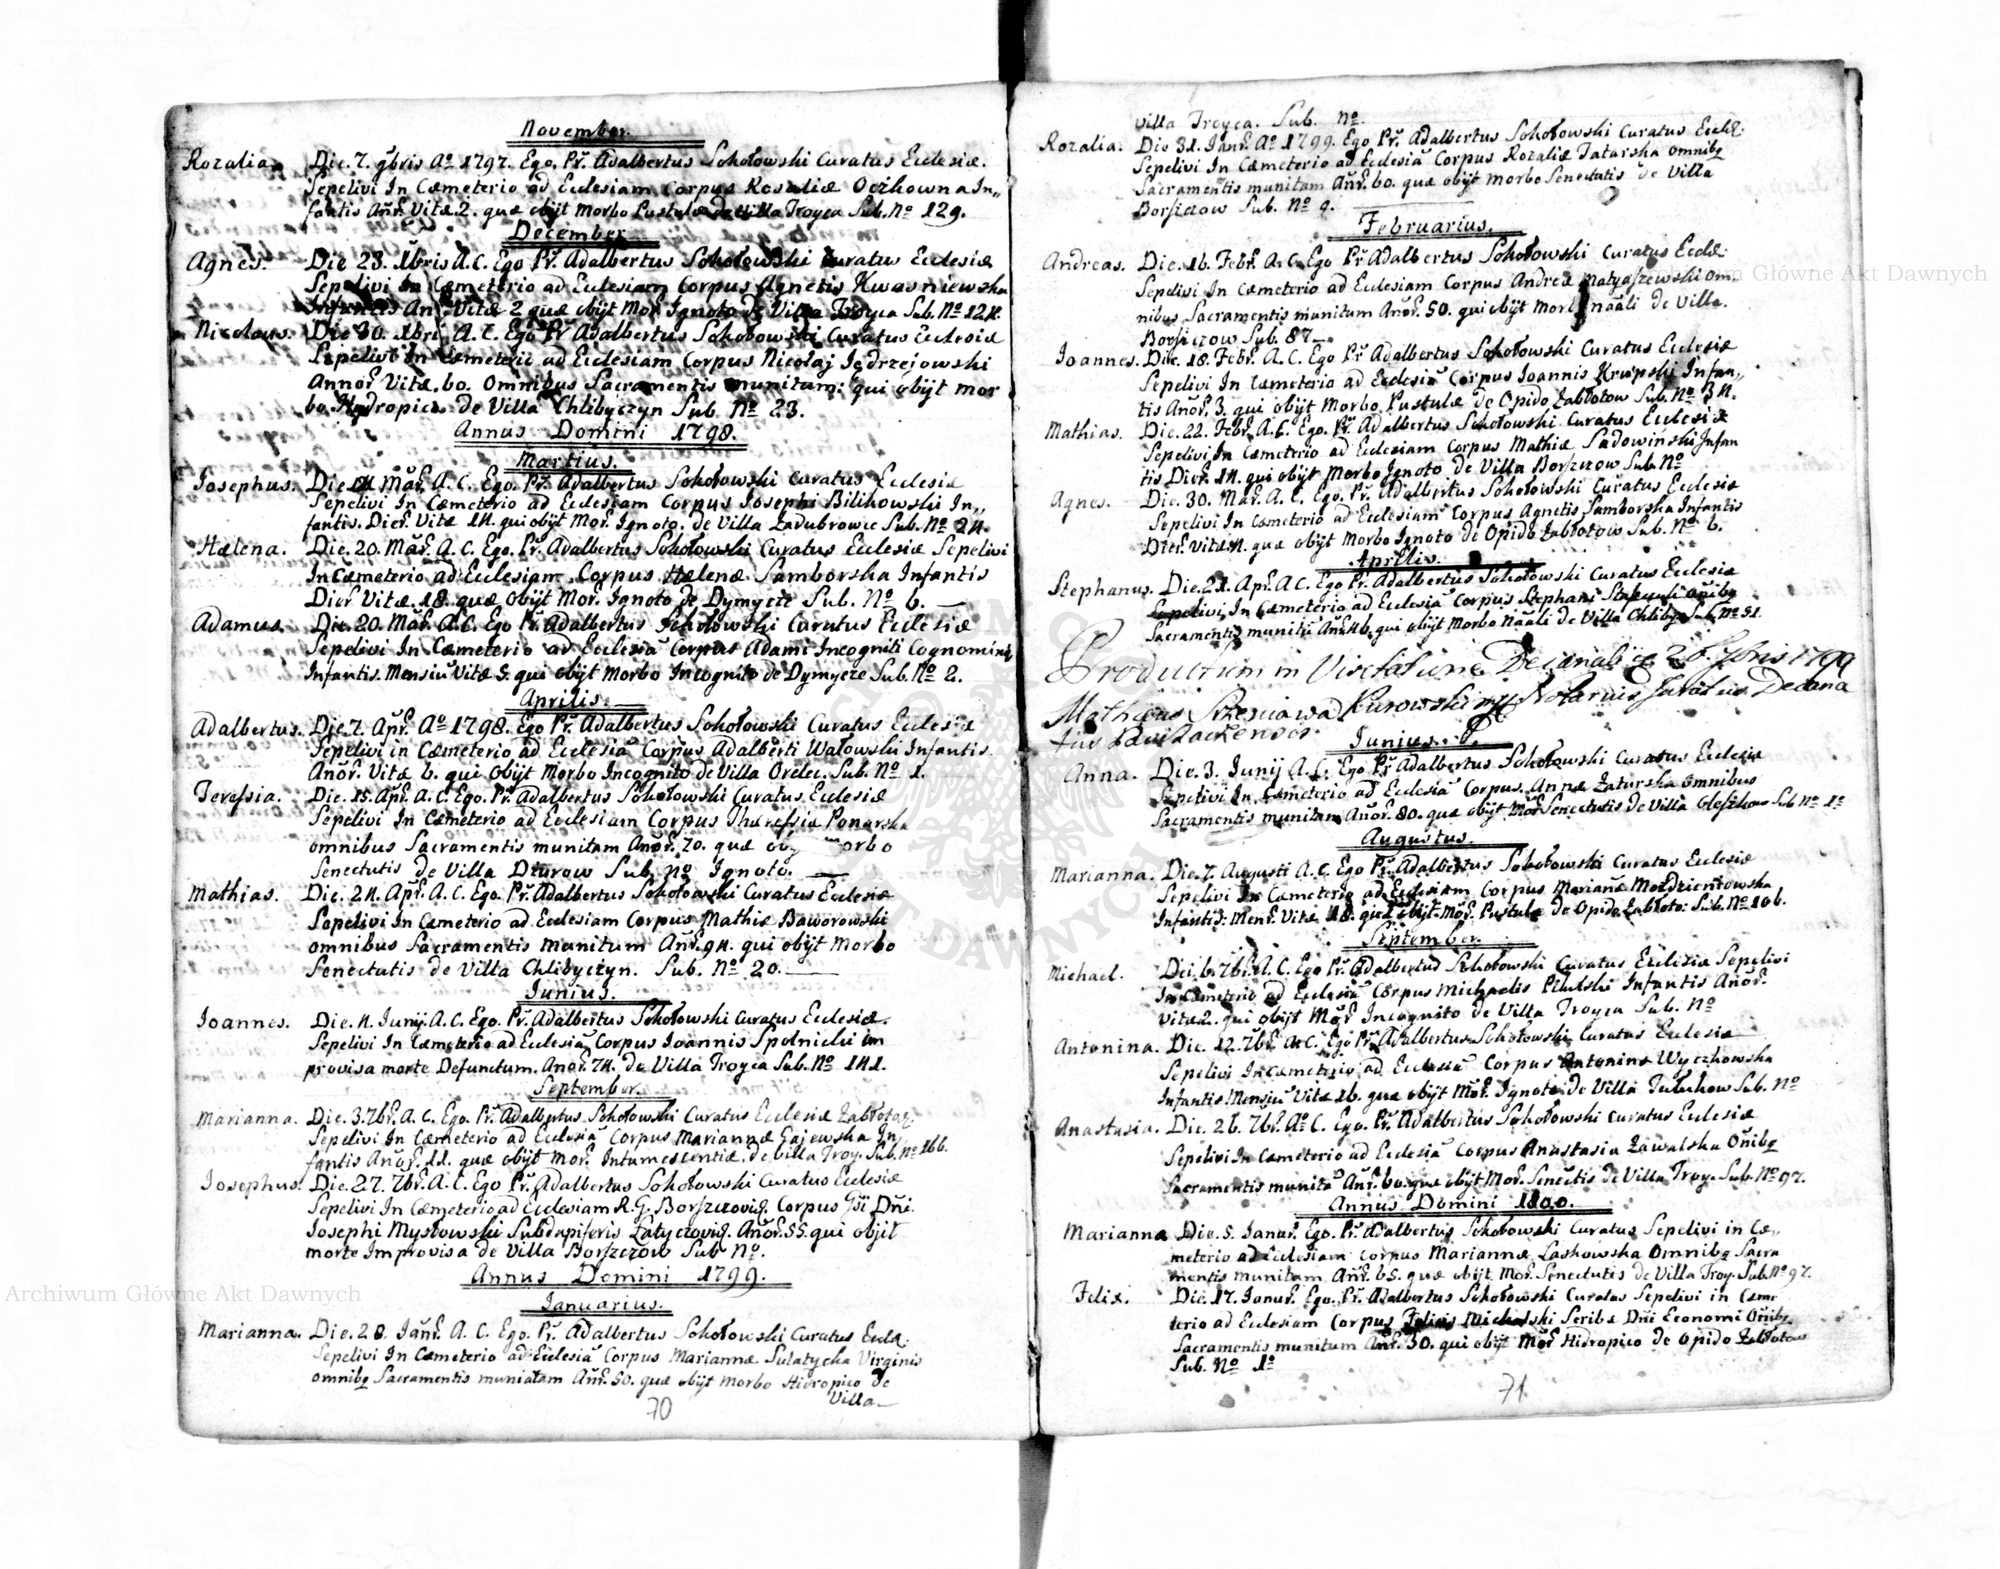 November.
Rozalia. Die. 7. 9bris Aº 1797. Ego. Pr̃. Adalbertus Sokołowski Curatus Ecclesiæ.
Sepelivi In Cæmeterio ad Ecclesiam Corpus Rosaliæ In„
fantis Añor̃. Vitæ. 2. quæ obijt Morbo Pustulæ de Villa Troyca Sub. Nº 129.
December
Agnes. Die 23. Xbris A. C. Ego Pr̃. Adalbertus Sokołowski Curatus Ecclesiæ
Sepelivi In Cæmeterio ad Ecclesiam Corpus Agnetis Kwasniewska
Infantis An̄ Vitæ 2 quæ obijt Mor̃. Ignoto de Villa Troyca Sub. Nº 124.
Nicolaus. Die 30. Xbris A. C. Ego Pr̃ Adalbertus Sokołowski Curatus Ecclesiæ
Sepelivi In Cæmeterio ad Ecclesiam Corpus Nicołaj Jędrzejowski
Annor̃ Vitæ. 60. Omnibus Sacramentis munitum: qui obijt mor
bo Hydropico. de Villa Chlibyczyn Sub Nº 23.
Annus Domini 1798.
Martius.
Josephus. Die Mar̃. A. C. Ego. Pr̃. Adalbertus Sokołowski Curatus Ecclesiæ
Sepelivi In Cæmeterio ad Ecclesiam Corpus Josephi Bilikowski In„
fantis. Dier̃. Vitæ 14. qui obijt Mor̃. Ignoto. de Villa Zadubrowce Sub. Nº 24.
Hælena. Die. 20. Mar̃. A. C. Ego. Pr̃. Adalbertus Sokołowski Curatus Ecclesiæ Sepelivi
In Cæmeterio ad Ecclesiam. Corpus Hælenæ Samborska Infantis
Dier̃ Vitæ. 18. quæ obijt Mor̃. Ignoto de Dymycze Sub. Nº 6.
Adamus. Die. 20. Mar̃. A. C. Ego Pr̃ Adalbertus Sokołowski Curatus Ecclesiæ
Sepelivi In Cæmeterio ad Ecclesiã Corpus Adami Incogniti Cognominis
Infantis. Mensiũ Vitæ 5. qui obijt Morbo Incognito de Dymycze Sub. Nº 2.
Aprilis.
Adalbertus. Die 7. Apr̃. Aº 1798. Ego Pr̃. Adalbertus Sokołowski Curatus Ecclesiæ
Sepelivi in Cæmeterio ad Ecclesiã Corpus Adalberti Wałowski Infantis.
Añor̃. Vitæ 6. qui obijt Morbo Incognito de Villa Orelec. Sub. Nº 1.
Teressia. Die. 15. Apr̃. A. C. Ego. Pr̃. Adalbertus Sokołowski Curatus Ecclesiæ
Sepelivi In Cæmeterio ad Ecclesiam Corpus Theressiæ Ponarska
omnibus Sacramentis munitam Añor̃. 70. quæ Morbo
Senectutis de Villa Dzurow Sub. Nº Ignoto.
Mathias. Die. 24. Apr̃. A. C. Ego. Pr̃. Adalbertus Sokołowski Curatus Ecclesiæ
Sepelivi In Cæmeterio ad Ecclesiam Corpus Mathiæ Baworowski
omnibus Sacramentis munitum Añr̃. 94. qui obijt Morbo
Senectutis de Villa Chlibyczyn. Sub. Nº 20.
Junius.
Joannes. Die. 4. Junij. A. C. Ego. Pr̃. Adalbertus Sokołowski Curatus Ecclesiæ.
Sepelivi In Cæmeterio ad Ecclesiã Corpus Joannis Spolnicki im
provisa morte Defunctum. Añor̃. 74. de Villa Troyca Sub. Nº 141.
September.
Marianna. Die. 3. 7br̃. A. C. Ego. Pr̃. Adalbertus Sokołowski Curatus Ecclesiæ
Sepelivi In Cæmeterio ad Ecclesiã Corpus Mariannæ Gajewska In„
fantis Añor̃. 11. quæ obijt Mor̃. Intumescentiæ. de Villa Troy. Sub. Nº 166.
Josephus. Die. 27. 7br̃. A. C. Ego Pr̃. Adalbertus Sokołowski Curatus Ecclesiæ
Sepelivi In Cæmeterio ad Ecclesiam R. G. Borszczovię. Corpus Dñi.
Josephi Mysłowski Subdapiferis Latyczovię. Añor̃. 55. qui objit
morte Improvisa de Villa Borszczow Sub Nº.
Annus Domini 1799.
Januarius.
Marianna. Die. 28. Janr̃. A. C. Ego. Pr̃. Adalbertus Sokołowski Curatus Eccle.
Sepelivi In Cæmeterio ad Ecclesiã Corpus Mariannæ Sulatycka Virginis
omnibꝫ Sacramentis muniatam Añr̃. 50. quæ obijt Morbo Hidropico de
Villa
70
Villa Troyca. Sub. Nº.
Rozalia. Die 31. Janr̃. Aº 1799. Ego Pr̃. Adalbertus Sokołowski Curatus Eccle.
Sepelivi In Cæmeterio ad Ecclesiã Corpus Rozaliæ Tatarska omnibꝫ
Sacramentis munitam Añr̃. 60. quæ obijt Morbo Senectutis de Villa
Borszczow Sub. Nº 9.
Februarius.
Andreas. Die. 16. Febr̃. A. C. Ego Pr̃ Adalbertus Sokołowski Curatus Eccle.
Sepelivi In Cæmeterio ad Ecclesiam Corpus Andreæ Matyaszewski om„
nibus Sacramentis munitum Añor̃. 50. qui obijt Mor̃ nãali de Villa.
Borszczow Sub. 87
Joannes. Die. 18. Febr̃. A. C. Ego Pr̃ Adalbertus Sokołowski Curatus Ecclesiæ
Sepelivi In Cæmeterio ad Ecclesiã Corpus Joannis Krupski Infan„
tis Añor̃. 3. qui obijt Morbo Pustulæ de Opido Zabłotow Sub. Nº 34.
Mathias. Die. 22. Febr̃. A. C. Ego. Pr̃. Adalbertus Sokołowski Curatus Ecclesiæ
Sepelivi In Cæmeterio ad Ecclesiam Corpus Mathiæ Sadowinski Infan
tis Dier̃. 14. qui obijt Morbo Ignoto de Villa Borszczow Sub. Nº
Agnes. Die. 30. Mar̃. A. C. Ego. Pr̃. Adalbertus Sokołowski Curatus Ecclesiæ
Sepelivi In Cæmeterio ad Ecclesiam Corpus Agnetis Samborska Infantis
Dier̃. Vitæ. 4. quæ obijt Morbo Ignoto de Opido Zabłotow Sub. Nº 6.
Aprilis.
Stephanus. Die. 21. Apr̃. A. C. Ego Pr̃. Adalbertus Sokołowski Curatus Ecclesiæ
Sepelivi In Cæmeterio ad Ecclesiã Corpus Stephani oñibꝫ
Sacramentis munitũ Añr̃. 46. qui obijt Morbo nãali de Villa Sub Nº 51.
Productum in Visitatione Decanali 7bris 1799
Mathæus Kurowski Notarius Juratus Decana
tus
Junius.
Anna. Die. 3. Junij A. C. Ego Pr̃ Adalbertus Sokołowski Curatus Ecclesiæ
Sepelivi In Cæmeterio ad Ecclesiã Corpus. Annæ Zaturska omnibus
Sacramentis munitam Añor̃. 80. quæ obijt Mor̃ Senectutis de Villa Oleszkow Sub Nº 1º
Augustus.
Marianna. Die. 7. Augusti A. C. Ego Pr̃. Adalbertus Sokołowski Curatus Ecclesiæ
Sepelivi In Cæmeterio ad Ecclesiam Corpus Marianæ
Infantis. Mens̃. Vitæ 18. quæ obijt Mor̃. Pustulæ de Opido Zabłoto: Sub. Nº 106.
September.
Michael. Die. 6. 7br̃. A. C. Ego Pr̃. Adalbertus Sokołowski Curatus Ecclesia Sepelivi
In Cæmeterio ad Ecclesiã Corpus Michaelis Infantis Añor̃.
Vitæ 2. qui obijt Mor̃ Incognito de Villa Troyca Sub. Nº
Antonina. Die. 12. 7br̃. A. C. Ego Pr̃. Adalbertus Sokołowski Curatus Ecclesiæ
Sepelivi In Cæmeterio ad Ecclesiã Corpus Antoninæ Wyczkowska
Infantis Mensiũ Vitæ 16. quæ obijt Mor̃. Ignoto de Villa Tułukow Sub. Nº
Anastasia. Die. 26. 7br̃. Aº C. Ego. Pr̃. Adalbertus Sokołowski Curatus Ecclesiæ
Sepelivi In Cæmeterio ad Ecclesiã Corpus Anastasia Zawalska Oñibꝫ
Sacramentis munitã Añr̃. 60. quæ obijt Mor̃. Senectis de Villa Troy. Sub. Nº 97.
Annus Domini 1800.
Marianna Die. 5. Januar̃. Ego. Pr̃. Adalbertus Sokołowski Curatus Sepelivi in Cæ„
meterio ad Ecclesiam Corpus Mariannæ Laskowska Omnibꝫ Sacra
mentis munitam Añr̃. 65. quæ obijt Mor̃. Senectutis de Villa Troy. Sub. Nº 97.
Felix. Die. 17. Januar̃. Ego. Pr̃. Adalbertus Sokołowski Curatus Sepelivi in Cæme
terio ad Ecclesiam Corpus Felicis Michalski Scriba Dñi Economi Oñibꝫ
Sacramentis munitum Añr̃. 30. qui obijt Mor̃ Hidropico de Opido Zabłotow
Sub. Nº 1º
71
Archiwum Główne Akt Dawnych